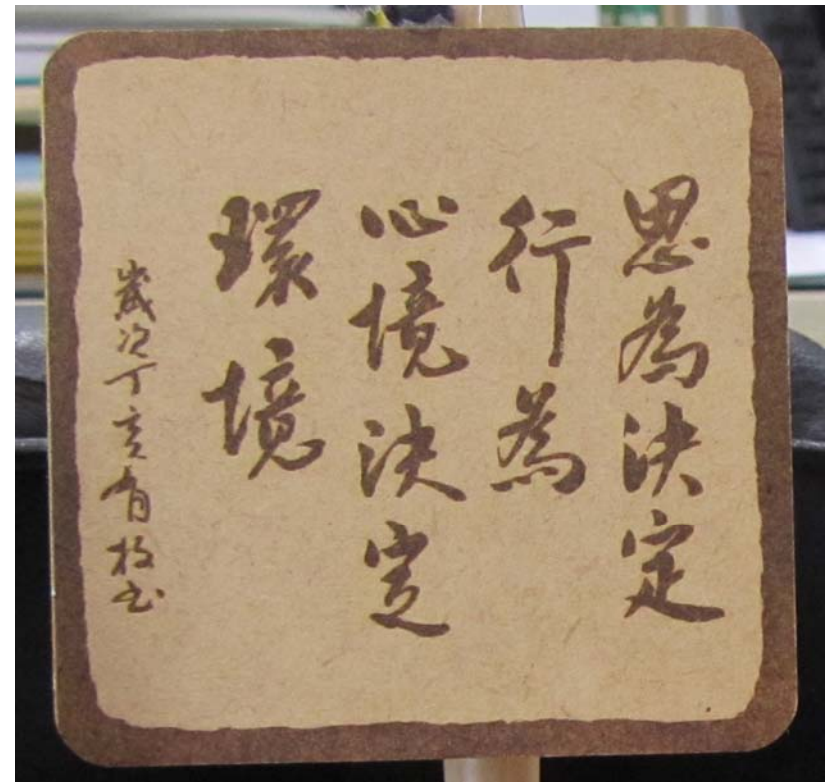 思為決定
行為
心境決定
環境
歲次丁亥有枝書